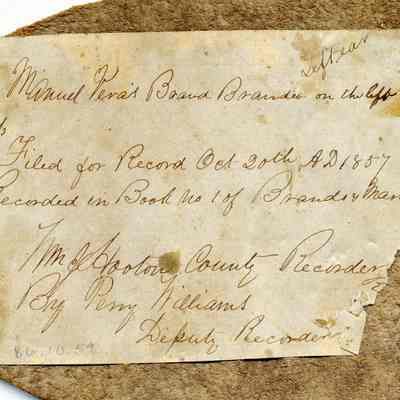 Left ear
Manuel Vera's Brand Branded on the left
Filed for Record Oct 20th AD 1857
Recorded in Book No 1 of Brands & Mar
Wm J Hooton County Recorder
By Perry Williams
Deputy Recorder